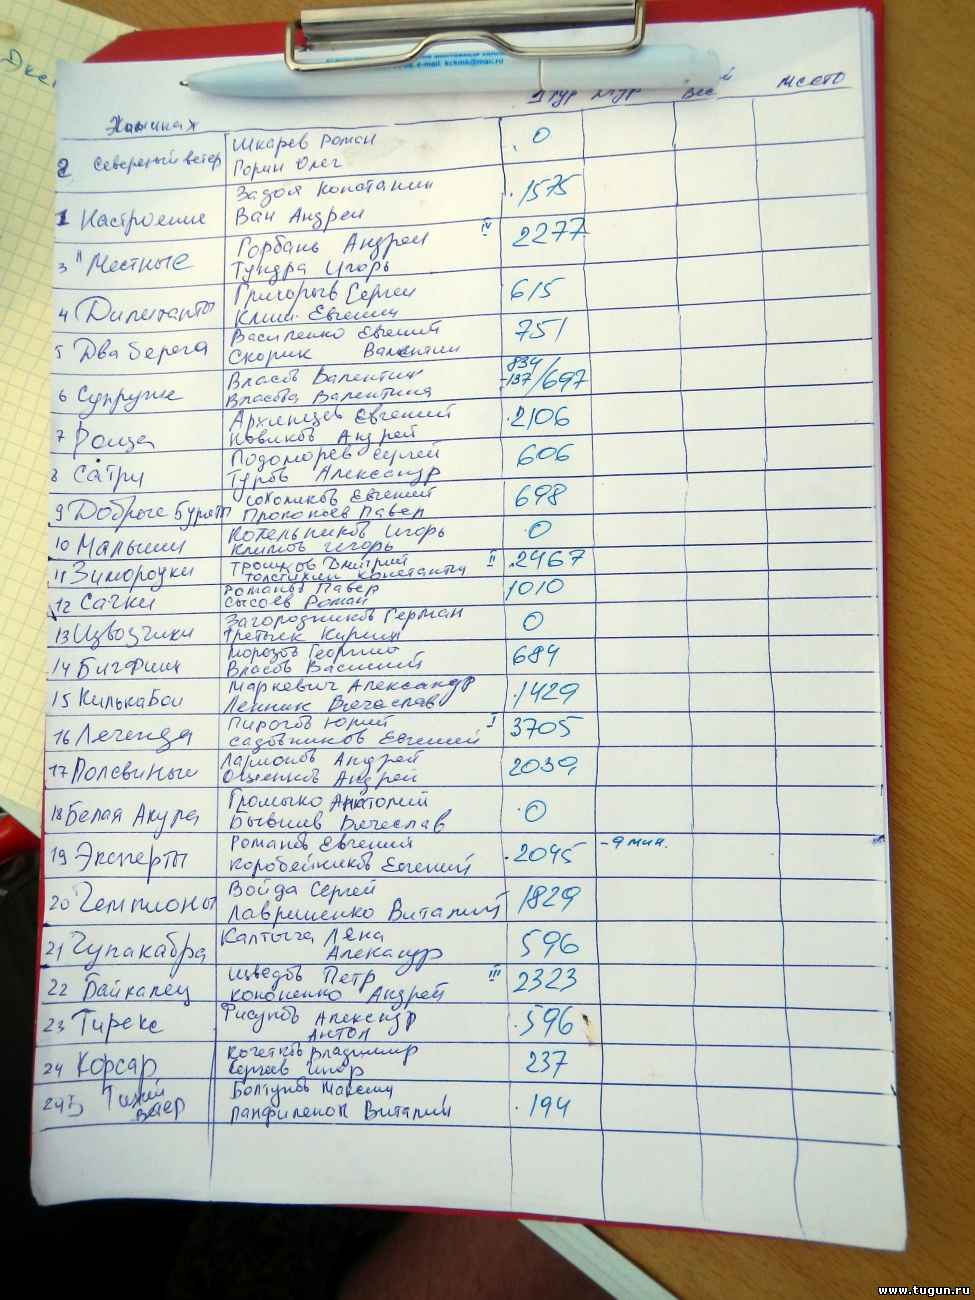 e-mail kckmk@mail.ru
1 тур тур вес место
2 Северный ветер Шкарев Роман 0
Горин Олег
1 Настроение Задоя Константин 1575
Ван Андрей
3 "Местные Горбань Андрей IV 2277
Тундра Игорь
4 Дилетанты Григорьев Сергей 615
Клим Евгений
5 Два берега Василенко Евгений 751
Скорик Валентин
6 Супруги Власов Валентин 834
Власова Валентина -137/697
7 Роща Архипцев Евгений 2106
Новиков Андрей
8 Сатри Подоморев Сергей 606
Туров Александр
9 Добрые Буряты Соколиков Евгений 698
Прокопьев Павел
10 Малыши Котельников Игорь 0
Климов Игорь
11 Зимородки Троицков Дмитрий II 2467
Толстихин Константин
12 Сачки Романов Павел 1010
Сысоев Роман
13 Извозчики Загородников Герман 0
Третьяк Кирилл
14 Бигфиш Морозов Георгий 684
Власов Василий
15 Килькабои Маркевич Александр 1429
Ленник Вячеслав
16 Легенда Пирогов Юрий I 3705
Садовников Евгений
17 Полевиныи Ларионов Андрей 2039
Ощепков Андрей
18 Белая Акула Громыко Анатолий 0
Бывшив Вячеслав
19 Эксперты Романов Евгений 2045 -9 мин.
Коробейников Евгений
20 Чемпионы Войда Сергей 1829
Лавриненко Виталий
21 Чупакабра Калтыга Лена 596
Александр
22 Байкалец Шведов Петр III 2323
Кононенко Андрей
23 Тирекс Фисунов Александр 596
Антон
24 Корсар Кочетков Владимир 237
Сергеев Игор
25 Тихий Болтунов Максим 194
Панфиленок Виталий
www.tugun.ru